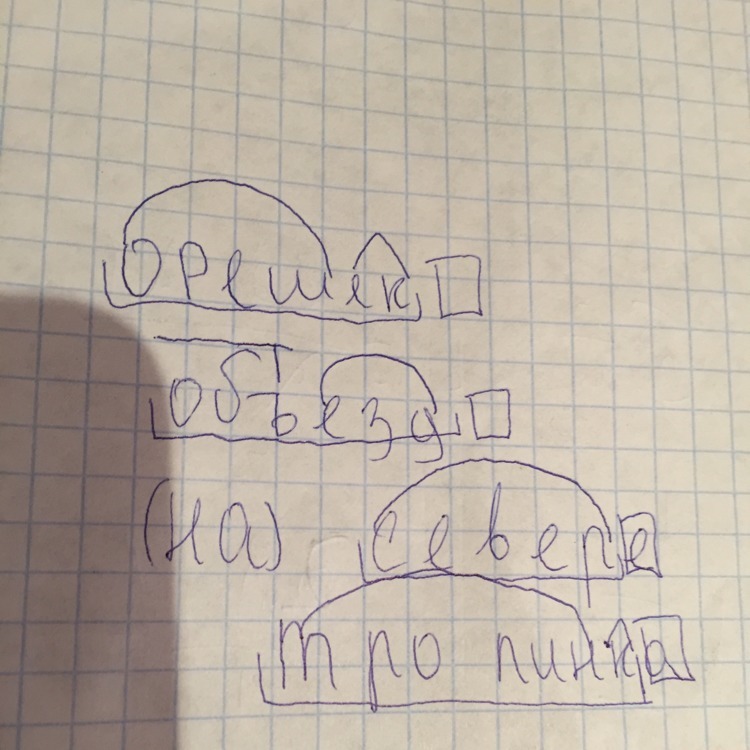 орешек
объезд
(на) севере
тропинка